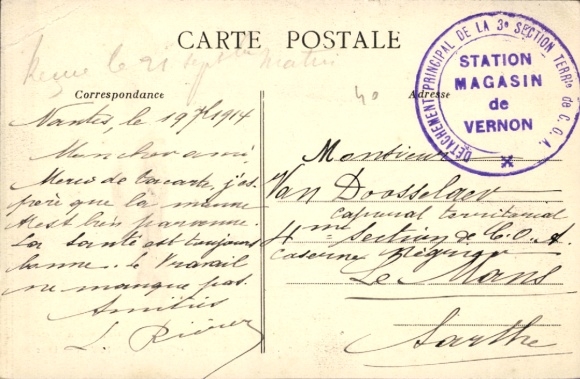 CARTE POSTALE
Reçue le 21 sept matin
40
Correspondance
Adresse
DÉTACHEMENT PRINCIPAL DE LA 3e SECTION TERRle de C.O.A.
STATION
MAGASIN
de
VERNON
Nantes, le 19 7bre 1914
Mon cher ami,
Merci de ta carte, j'es-
père que la mienne
t'est bien parvenue.
La santé est toujours
bonne. le travail
ne manque pas.
Amitiés
L.
Monsieur
Van Doosselaer
caporal territorial
4me Section de C.O.A.
Caserne Négrier
Le Mans
Sarthe